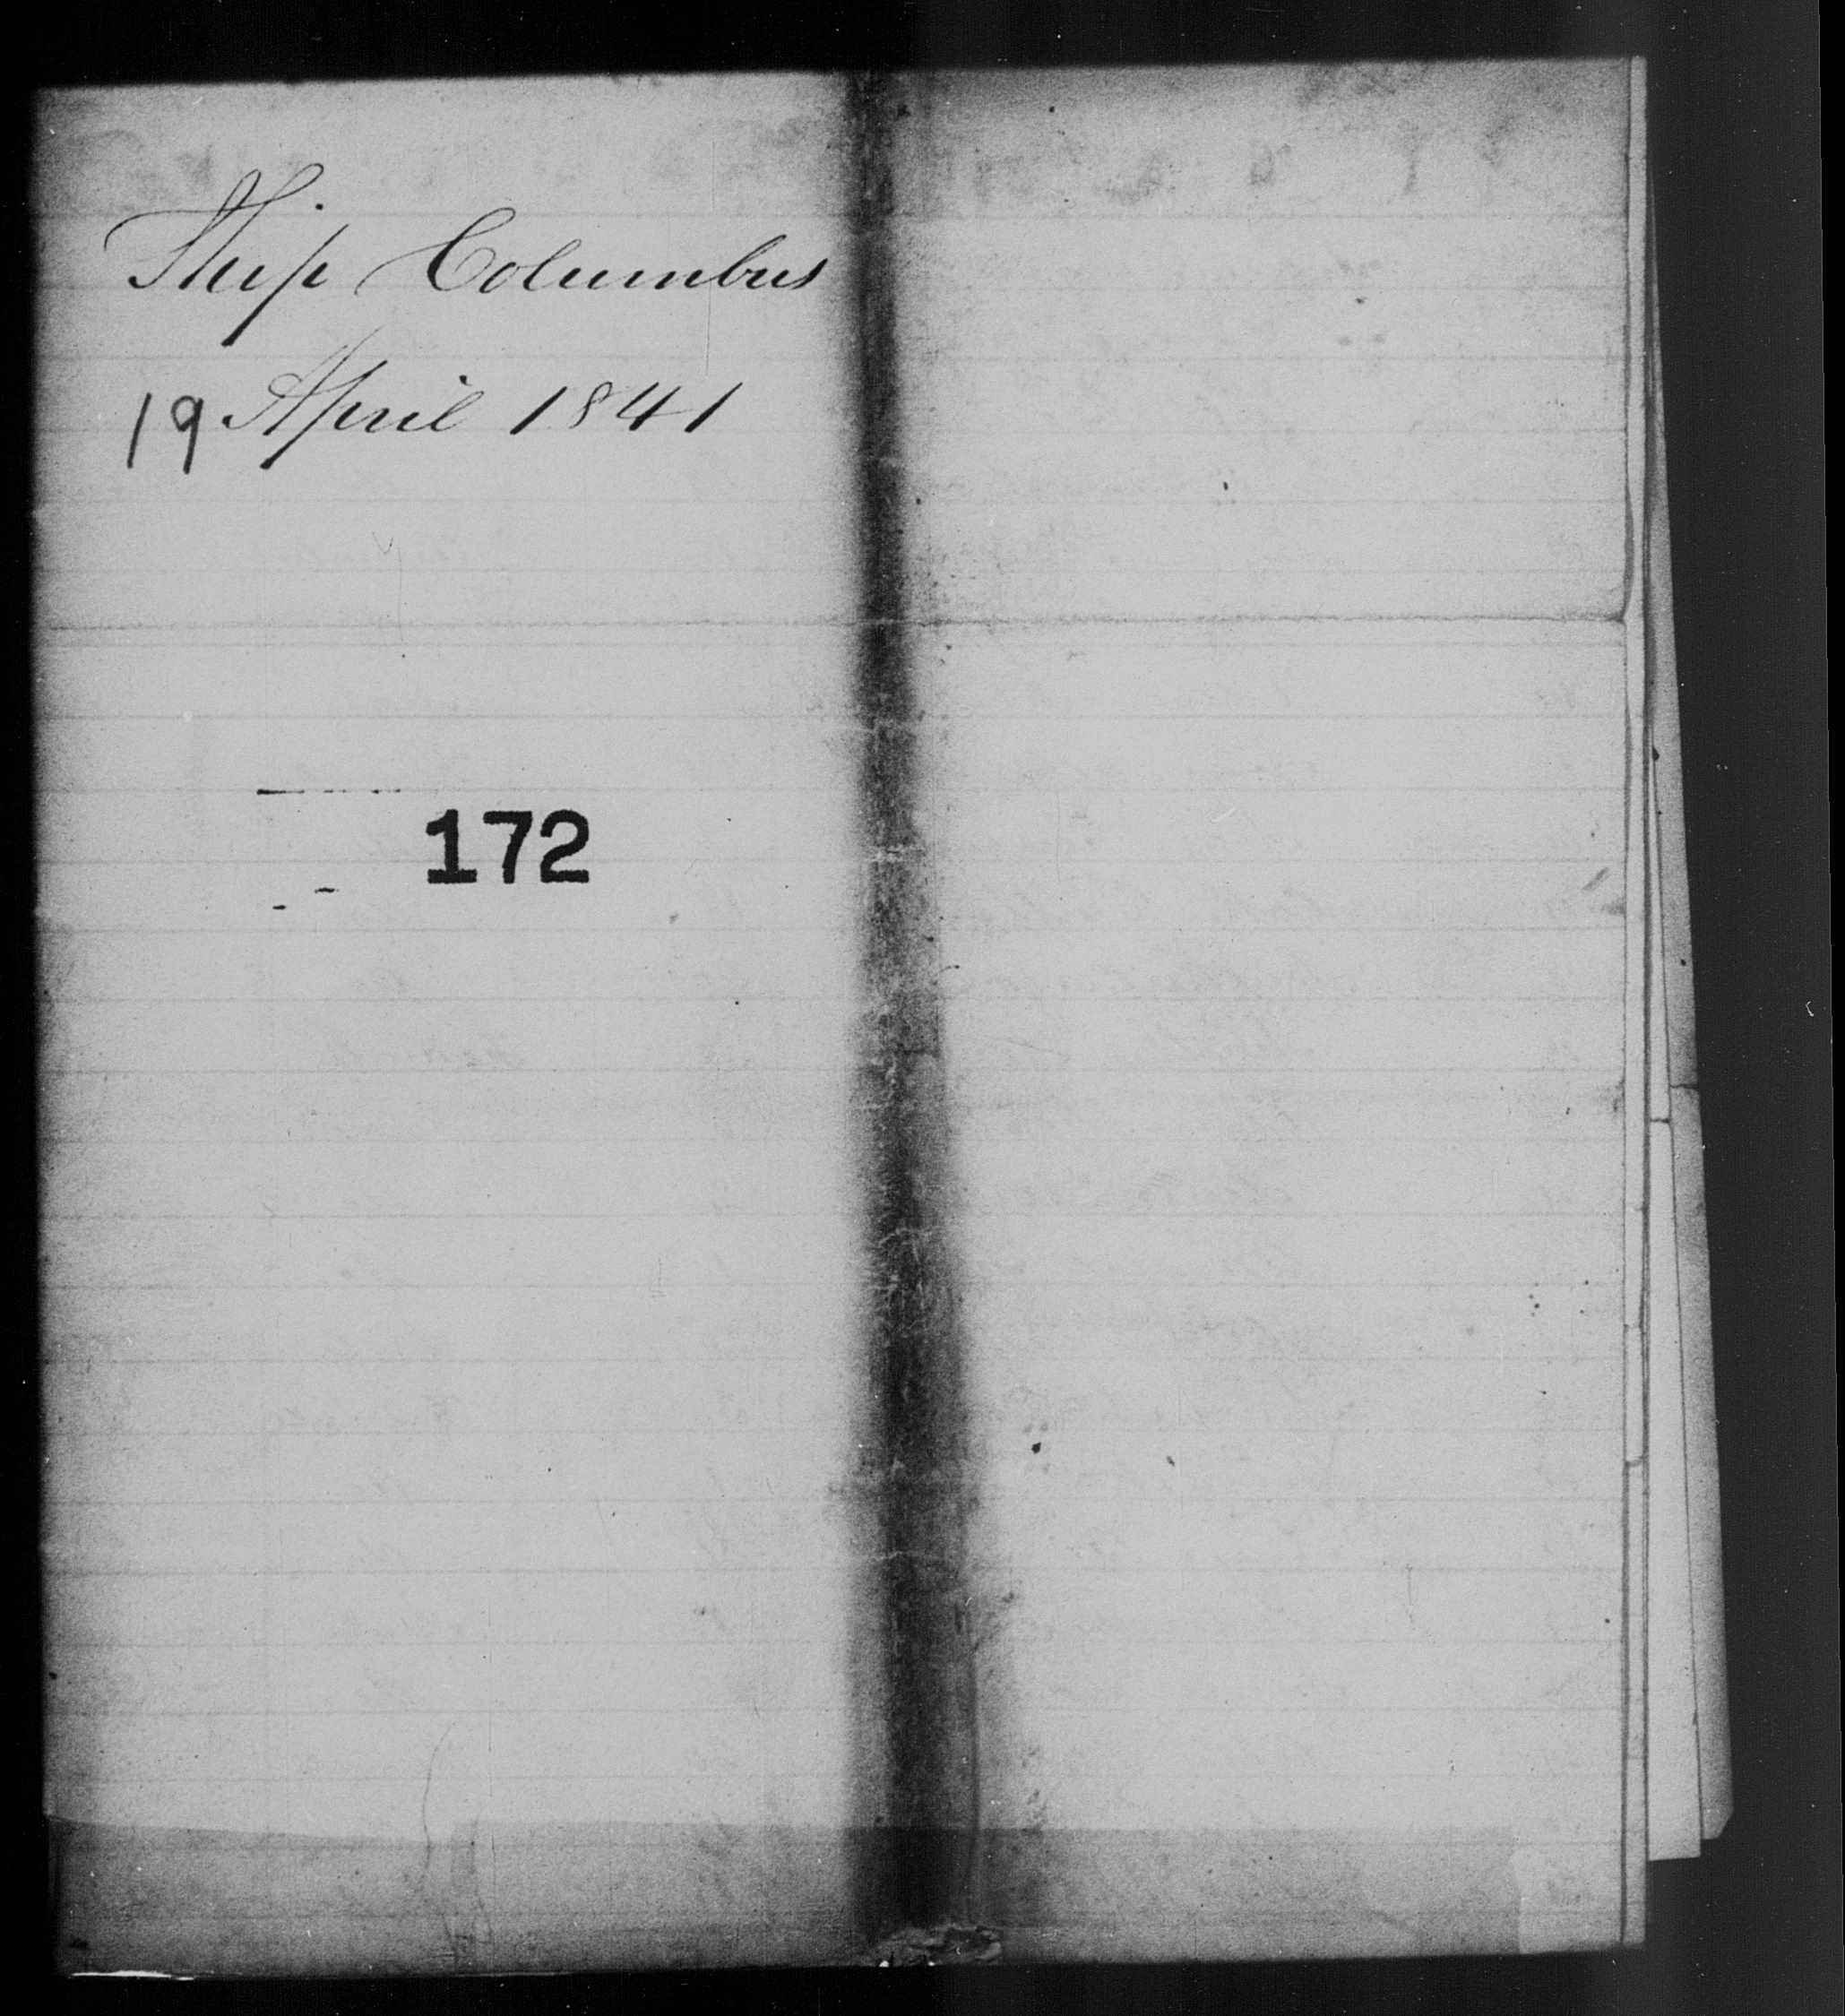 Ship Columbus
19 April 1841
172